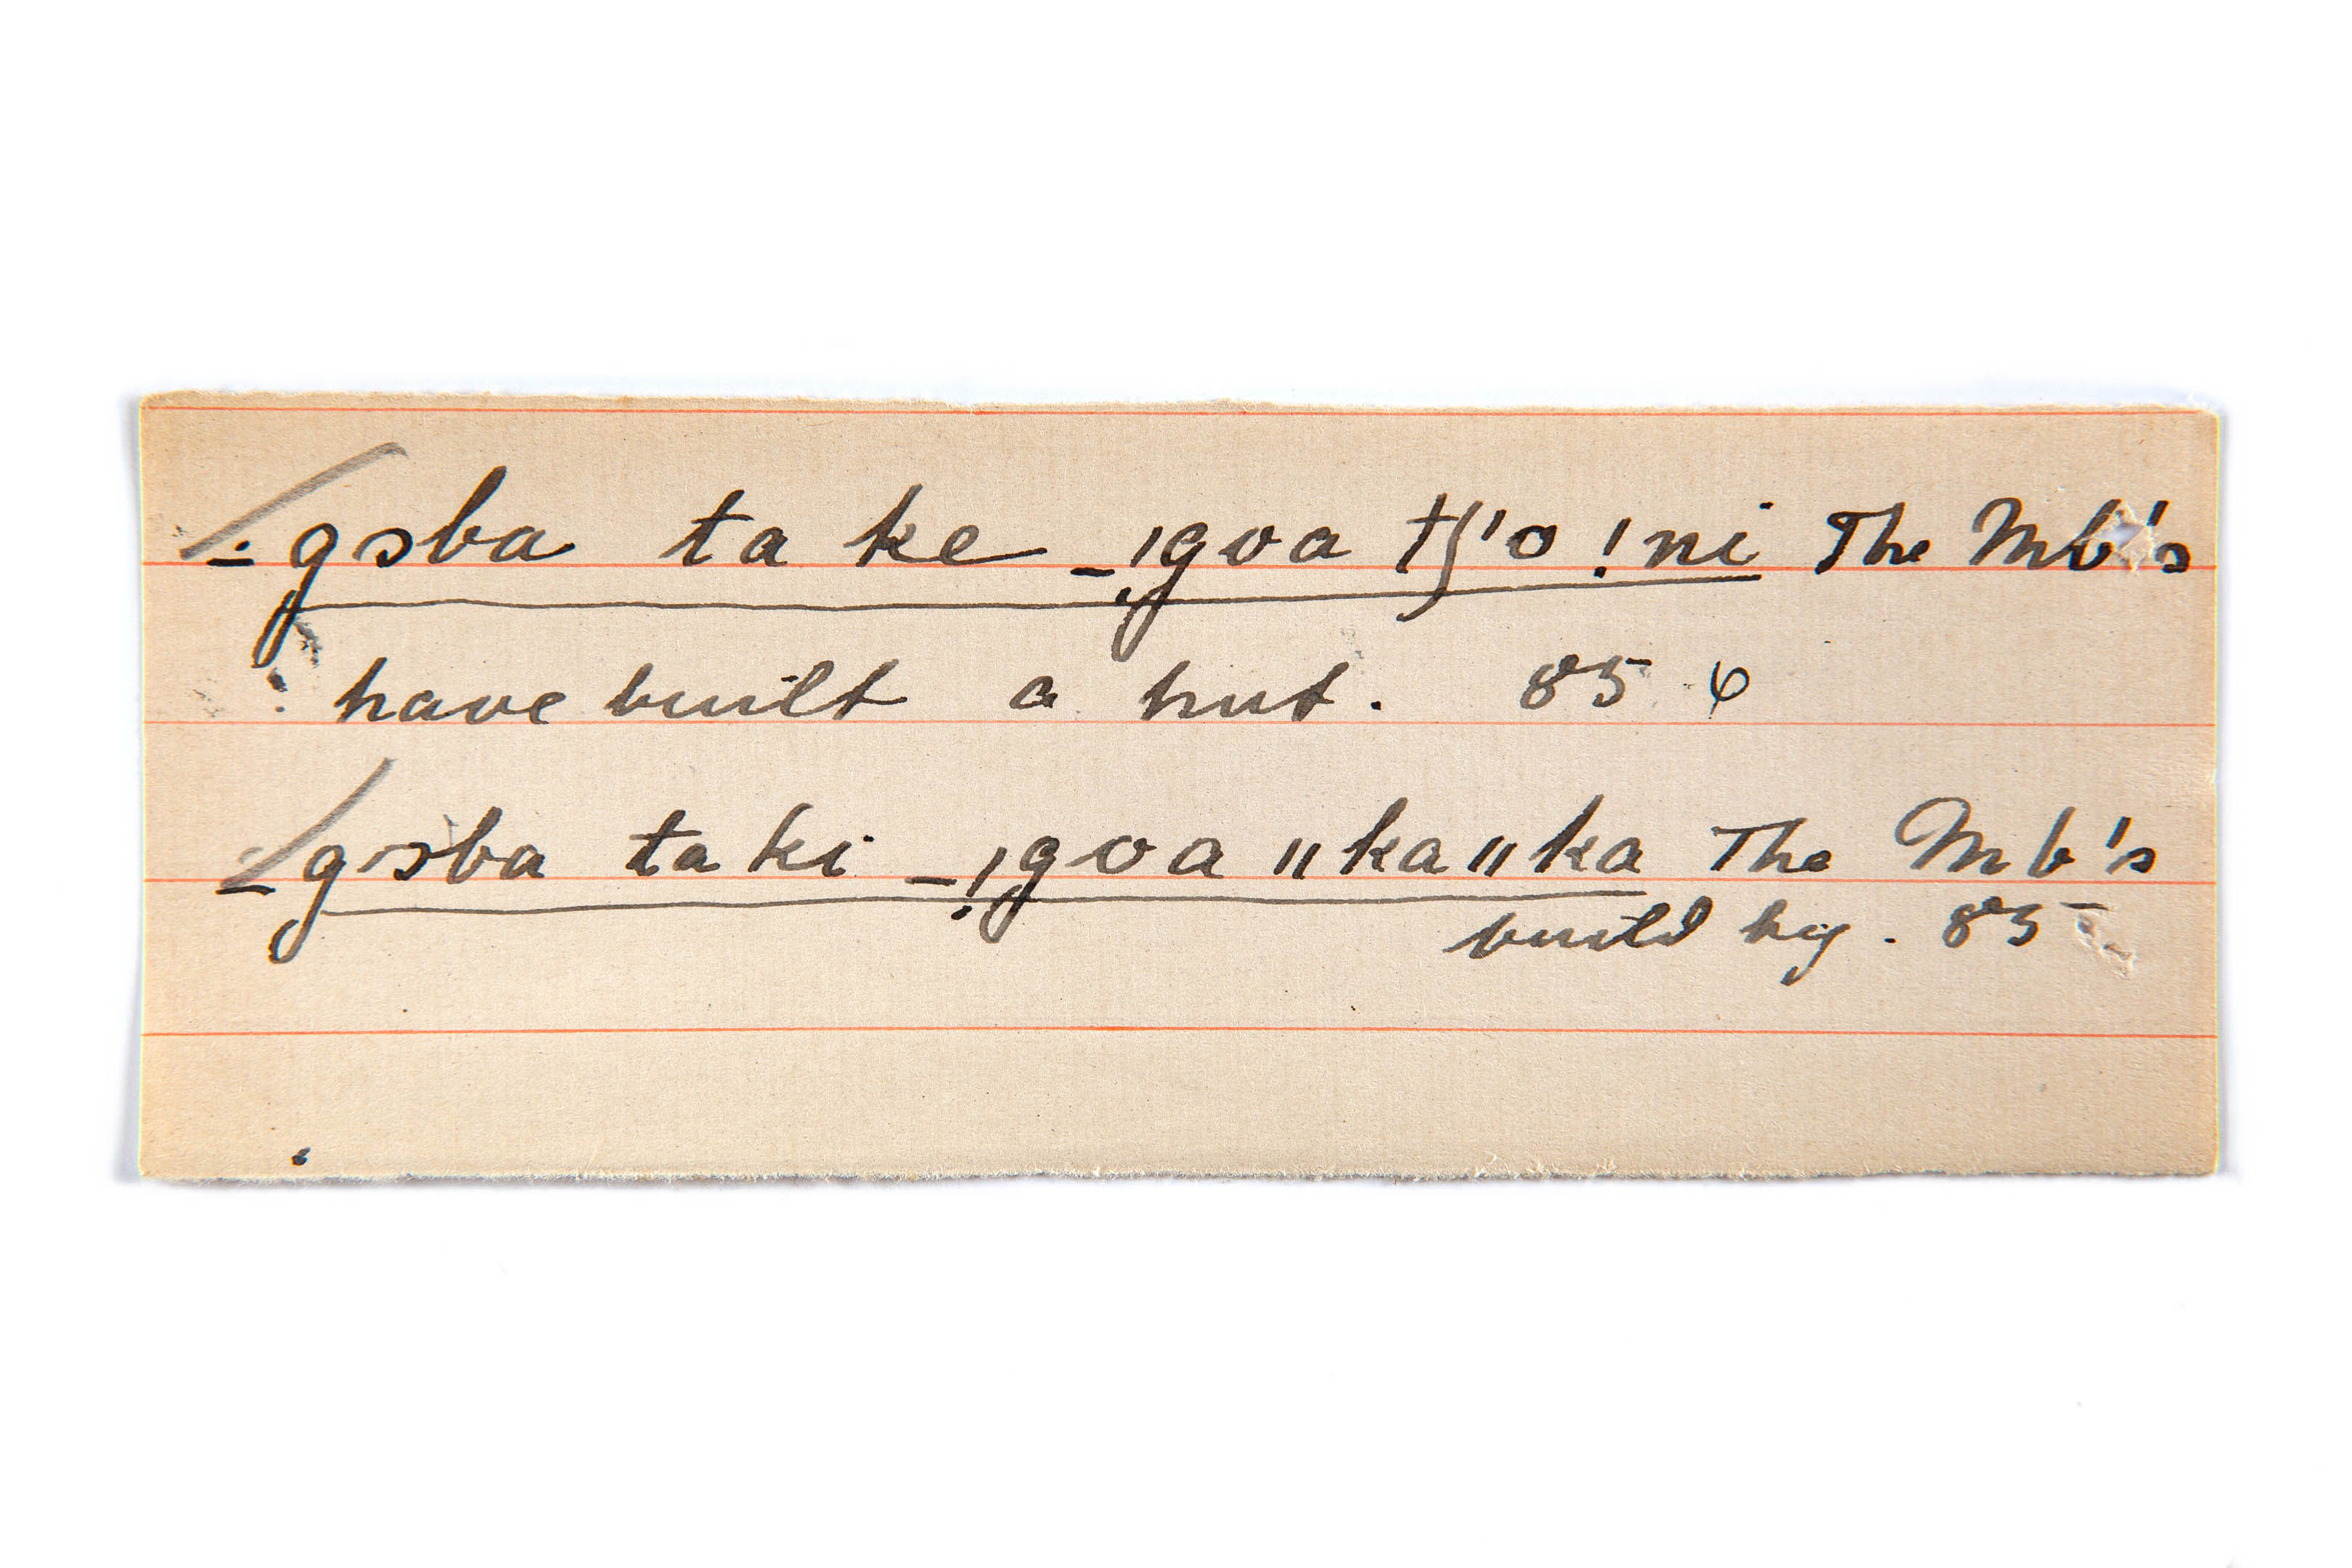 _gɔba ta ke _!goa tʃ'o !ni The Mb's
have built a hut. 85 φ
_gɔba ta ki _!goa ǁkaǁka The Mb's
build big. 85